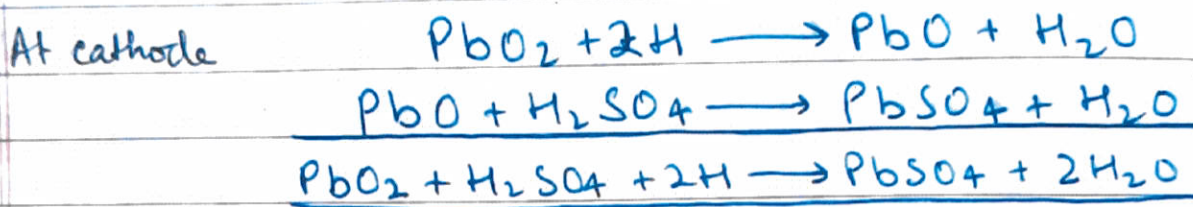 At cathode PbO₂ + 2H ⟶ PbO + H₂O
PbO + H₂SO₄ ⟶ PbSO₄ + H₂O
PbO₂ + H₂SO₄ + 2H ⟶ PbSO₄ + 2H₂O